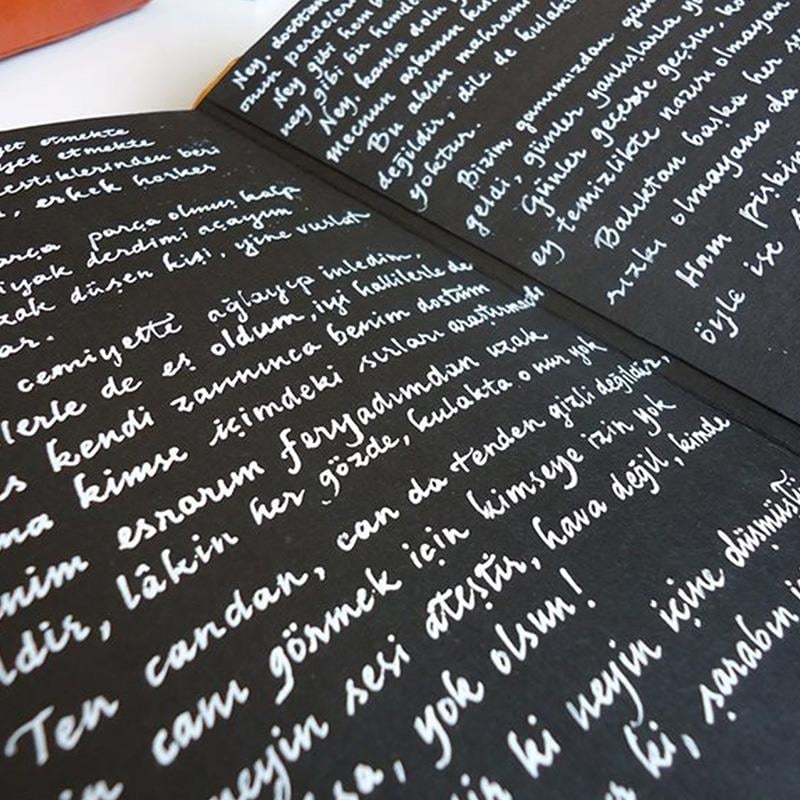 yet etmekte
yet etmekte
estiklerinden beri
, erkek herkes
arça parça olmuş kalp
iyak derdimi açayım
zak düşen kişi, yine vuslat
ar.
cemiyette ağlayıp inledim,
lerle de eş oldum, iyi hallilerle de
s kendi zannınca benim dostum
ma kimse içimdeki sırları araştırmadı
nim esrarım feryadımdan uzak
ldir, lâkin her gözde, kulakta o nur yok
Ten candan, can da tenden gizli değildir,
in canı görmek için kimseye izin yok
neyin sesi ateştir, hava değil, kimde
sa, yok olsun!
ir ki neyin içine düşmüştü
r ki, şarabın i
Ney, dosttan
onun perdeleri
Ney gibi hem
ney gibi bir hemde
Ney, kanla dolu
Mecnun aşkının
Bu aklın mahremi
değildir, dile de kulakta
yoktur.
Bizim gamımızdan gün
geldi, günler yanışlarla yo
Günler geçerse geçsin, ko
ey temizlikte naziri olmayan
Balıktan başka her şe
rızkı olmayana da
Ham, pişkin
öyle ise